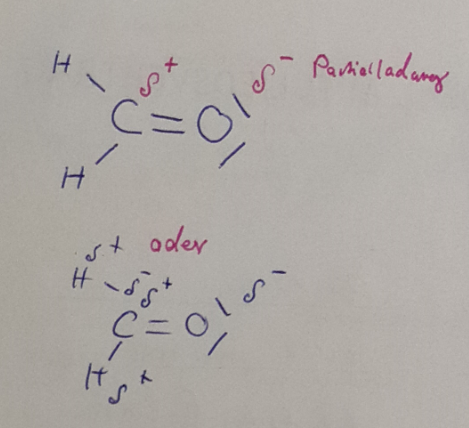 H
δ+ δ- Partialladung
C=O
H
δ+ oder
H δ- δ+ δ-
C=O
H δ+